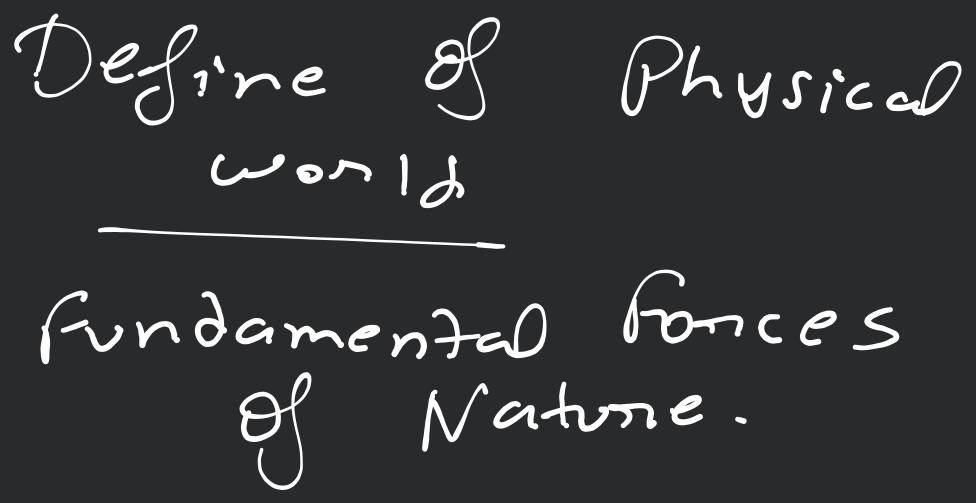 Define of Physical
world
Fundamental Forces
of Nature.